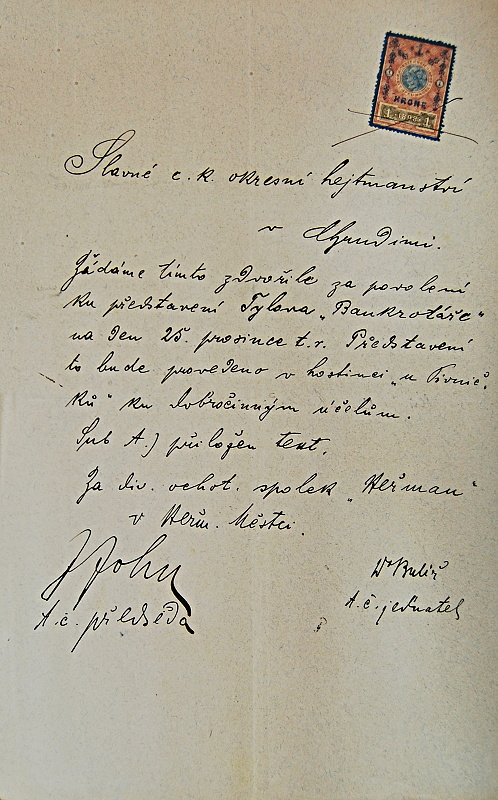 1 KRONE 1
1898
Slavné c. k. okresní hejtmanství
v Chrudimi.
Žádáme tímto zdvořile za povolení
ku představení Tylova „Bankrotáře“
na den 25. prosince t. r. Představení
to bude provedeno v hostinci „u Kronič-
ků“ ku dobročinným účelům.
Sub A.) přiložen text.
Za div. ochot. spolek „Heřman“
v Heřm. Městci.
J John
t. č. předseda
t. č. jednatel